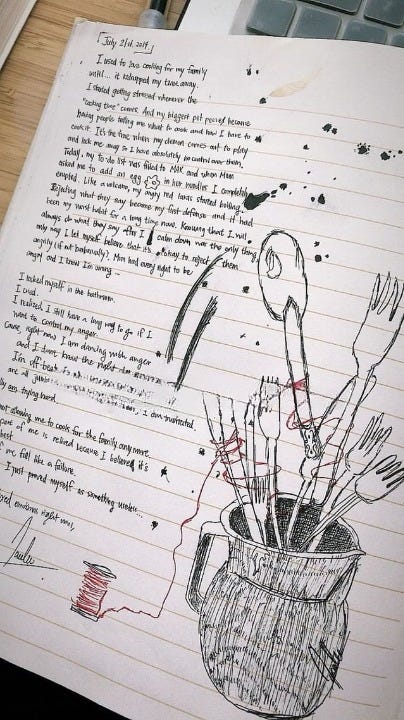 July 21st, 2019
I used to love cooking for my family
until... it kidnapped my time away.
I started getting stressed whenever the
"cooking time" comes. And my biggest pet peeved became
having people telling me what to cook and how I have to
cook it. It's the time when my demon comes out to play
and lock me away so I have absolutely no control over them.
Today, my to-do list was filled to MAX and when Mom
asked me to add an egg in her noodles I completely
erupted. Like a volcano, my angry red lava started boiling.
Rejecting what they say become my first defense and it had
been my worst habit for a long time now. Knowing that I will
always do what they say after I calm down was the only thing
only way I let myself believe that it's okay to reject them
angrily (if not barbarically). Mom had every right to be
angry and I knew I'm wrong...
I locked myself in the bathroom.
I cried.
I realized, I still have a long way to go if I
want to control my anger.
Cause, right now I am dancing with anger
and I don't know the right
I'm off beat.
are
trying hard. I am frustrated.
not allowing me to cook for the family anymore.
part of me is relieved because I believed it's
best.
of me felt like a failure.
I just proved myself as something useless...
emotions right now,